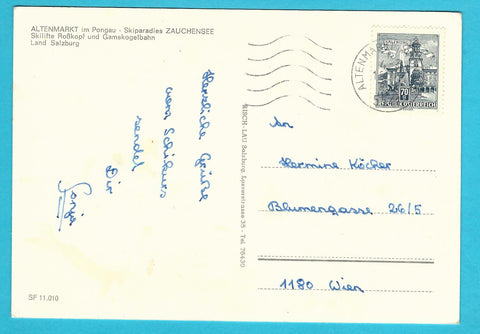 ALTENMARKT im Pongau - Skiparadies ZAUCHENSEE
Skilifte Roßkopf und Gamskogelbahn
Land Salzburg
Herzliche Grüße
vom Schikurs
sendet
Dir
Sonja
SF 11.010
RISCH-LAU Salzburg, Ignererstrasse 35 - Tel. 76430
ALTENMARKT
70
An
Hermine Köcher
Blumengasse 26/5
1180 Wien